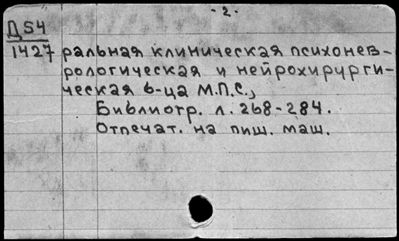 - 2 -
Д54
1427 ральная клиническая психонев-
рологическая и нейрохирурги-
ческая б-ца М.П.С.,
Библиогр. л. 268-284.
Отпечат. на пиш. маш.